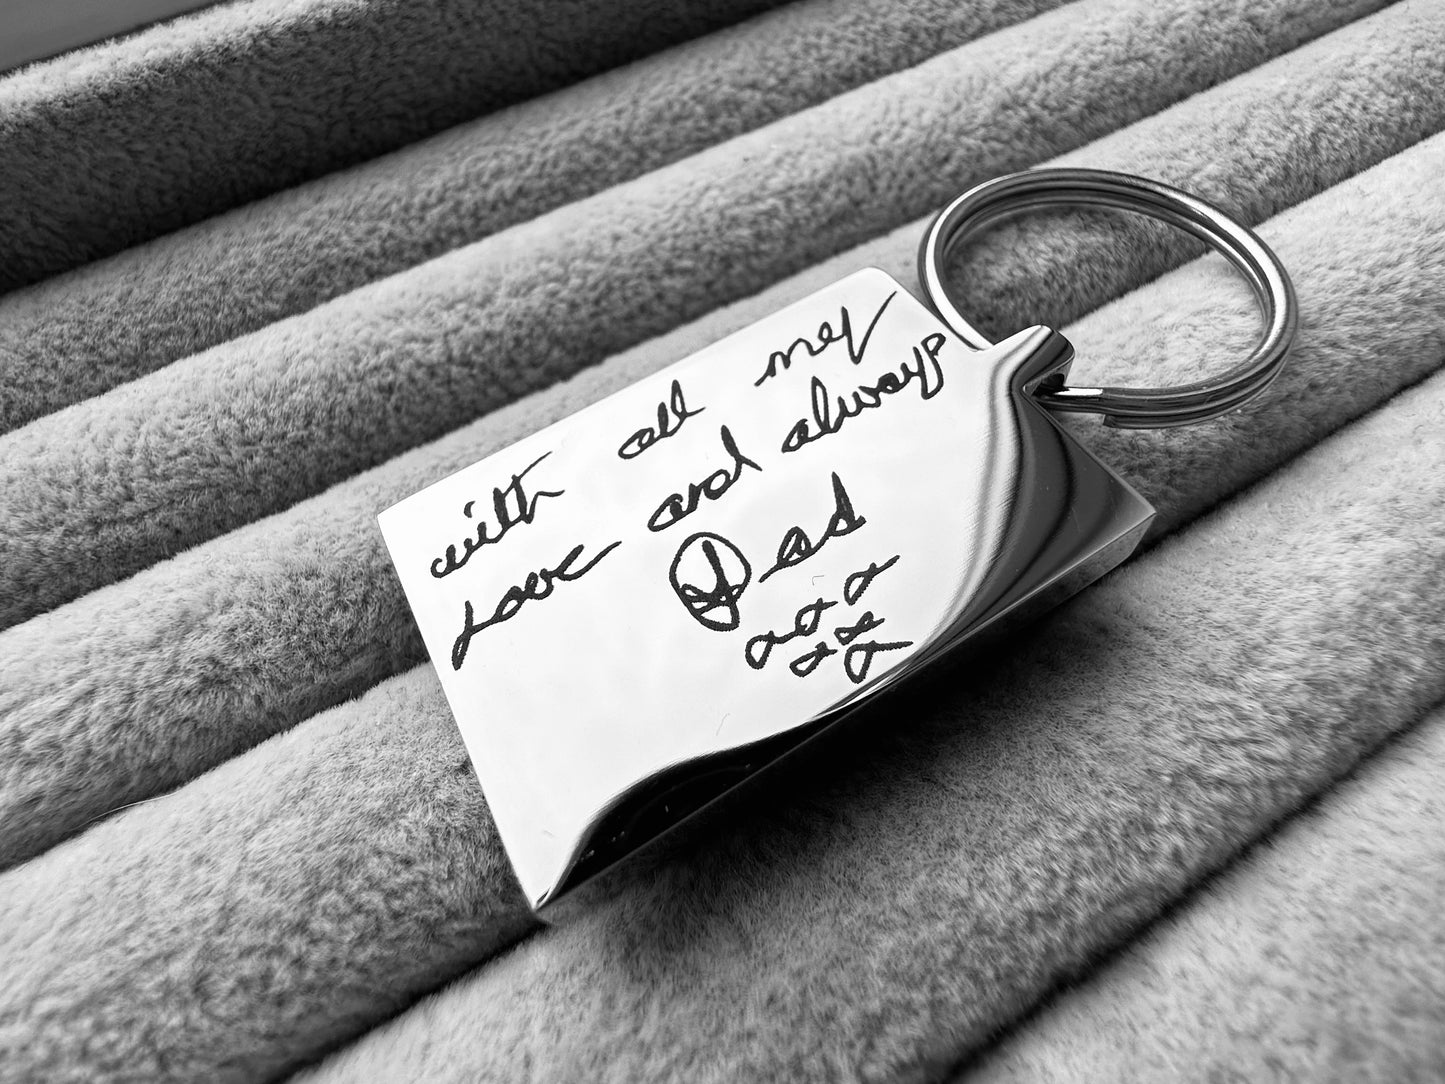 with all my
Love and always
Dad
xxx
xxx